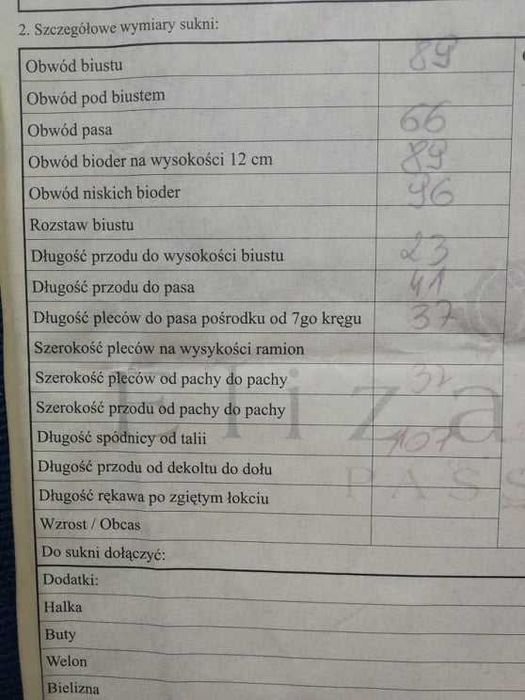 2. Szczegółowe wymiary sukni:
Obwód biustu 89
Obwód pod biustem
Obwód pasa 66
Obwód bioder na wysokości 12 cm 89
Obwód niskich bioder 96
Rozstaw biustu
Długość przodu do wysokości biustu 23
Długość przodu do pasa 41
Długość pleców do pasa pośrodku od 7go kręgu 37
Szerokość pleców na wysykości ramion
Szerokość pleców od pachy do pachy 32
Szerokość przodu od pachy do pachy
Eliza
Długość spódnicy od talii 107
Długość przodu od dekoltu do dołu
PASS
Długość rękawa po zgiętym łokciu
Wzrost / Obcas
Do sukni dołączyć:
Dodatki:
Halka
Buty
Welon
Bielizna